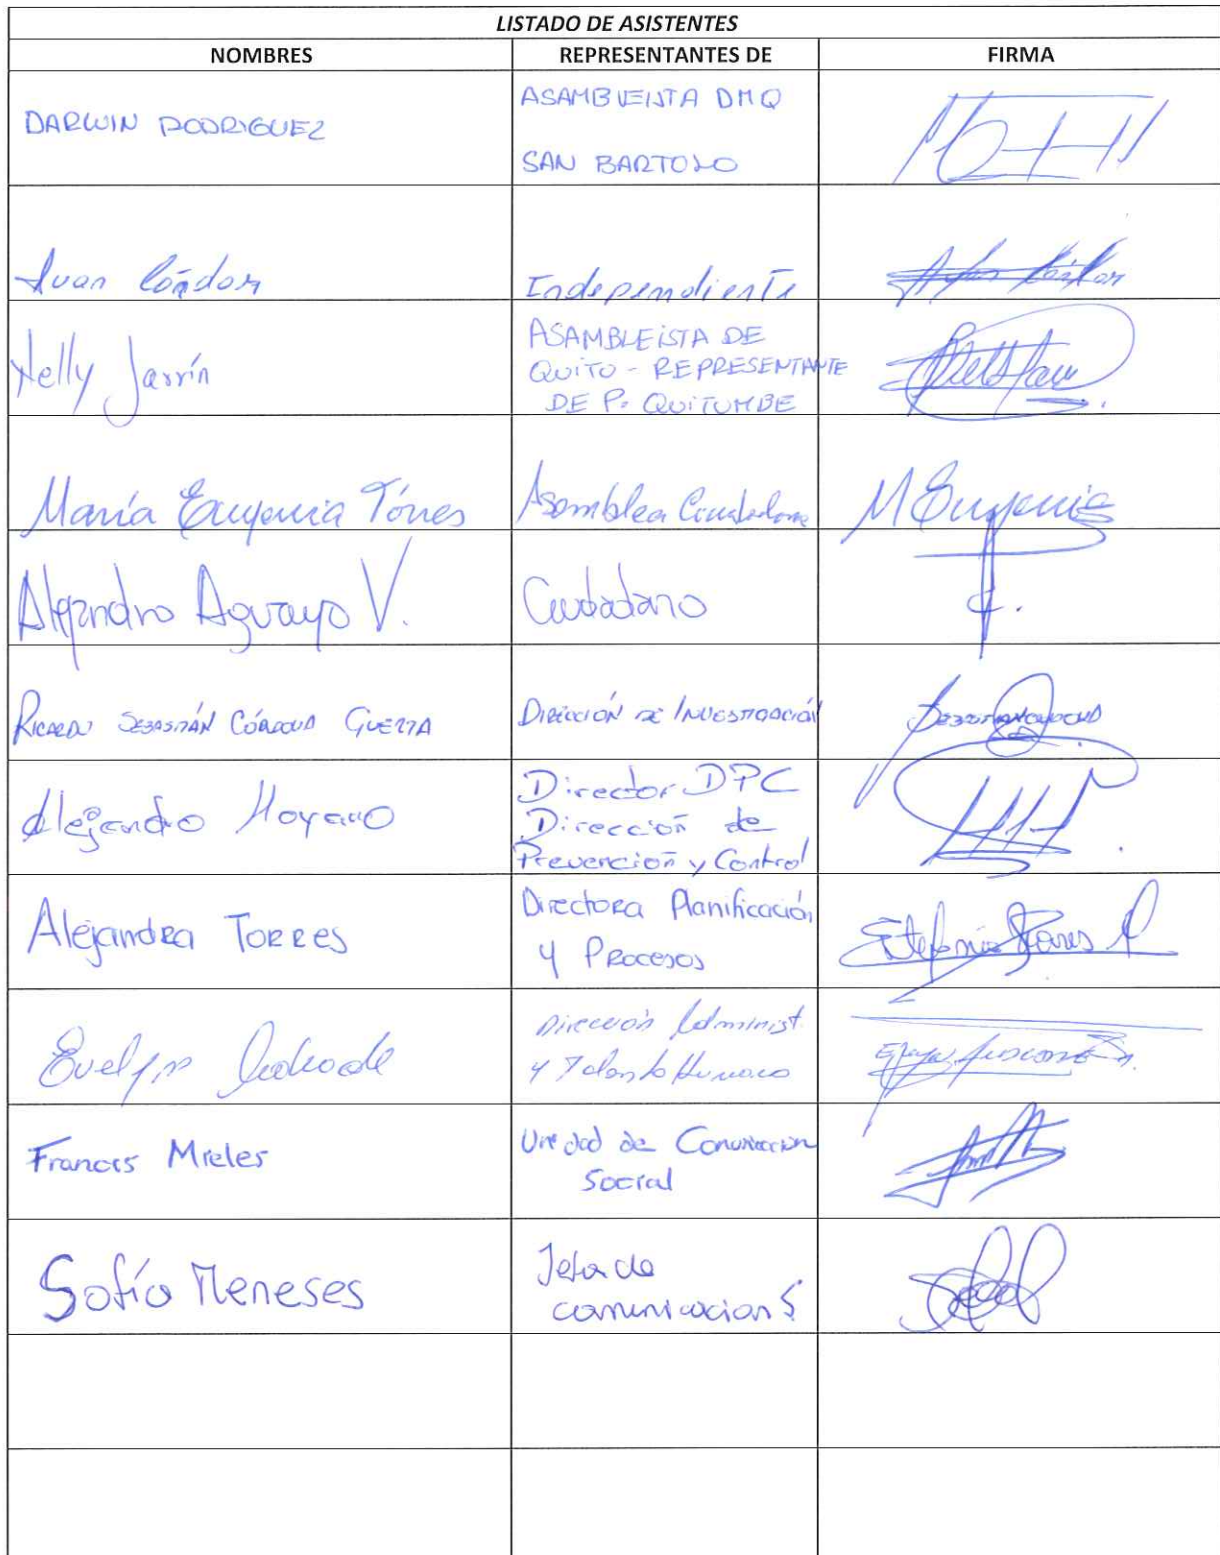 LISTADO DE ASISTENTES
NOMBRES REPRESENTANTES DE FIRMA
DARWIN RODRIGUEZ
ASAMBLEISTA DMQ
SAN BARTOLO
Juan Cóndor Independiente
Nelly Jarrín
ASAMBLEÍSTA DE
QUITO - REPRESENTANTE
DE P. QUITUMBE
María Eugenia Tórres Asamblea Ciudadana M Eugenia
Alejandro Aguayo V. Ciudadano
RICARDO SEBASTIÁN CÓRDOVA GUERRA DIRECCIÓN DE INVESTIGACIÓN
Alejandro Moyano
Director DPC
Dirección de
Prevención y Control
Alejandra TORRES
Directora Planificación
y Procesos
Estefanía Torres
Evelyn Andrade
Dirección Administ.
y Talento Humano
Francis Mieles
Unidad de Comunicación
Social
Sofía Meneses
Jefa de
comunicacion S